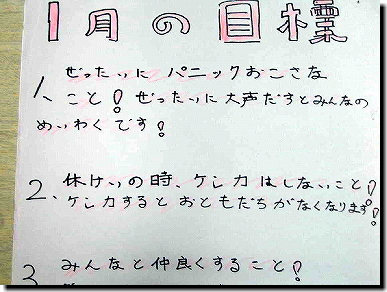 1月の目標
1、ぜったいに パニックおこさな
こと! ぜったいに大声だすとみんなの
めいわくです!
2、休けいの時、ケンカはしないこと!
ケンカするとおともだちがなくなります!
3 みんなと仲良くすること!